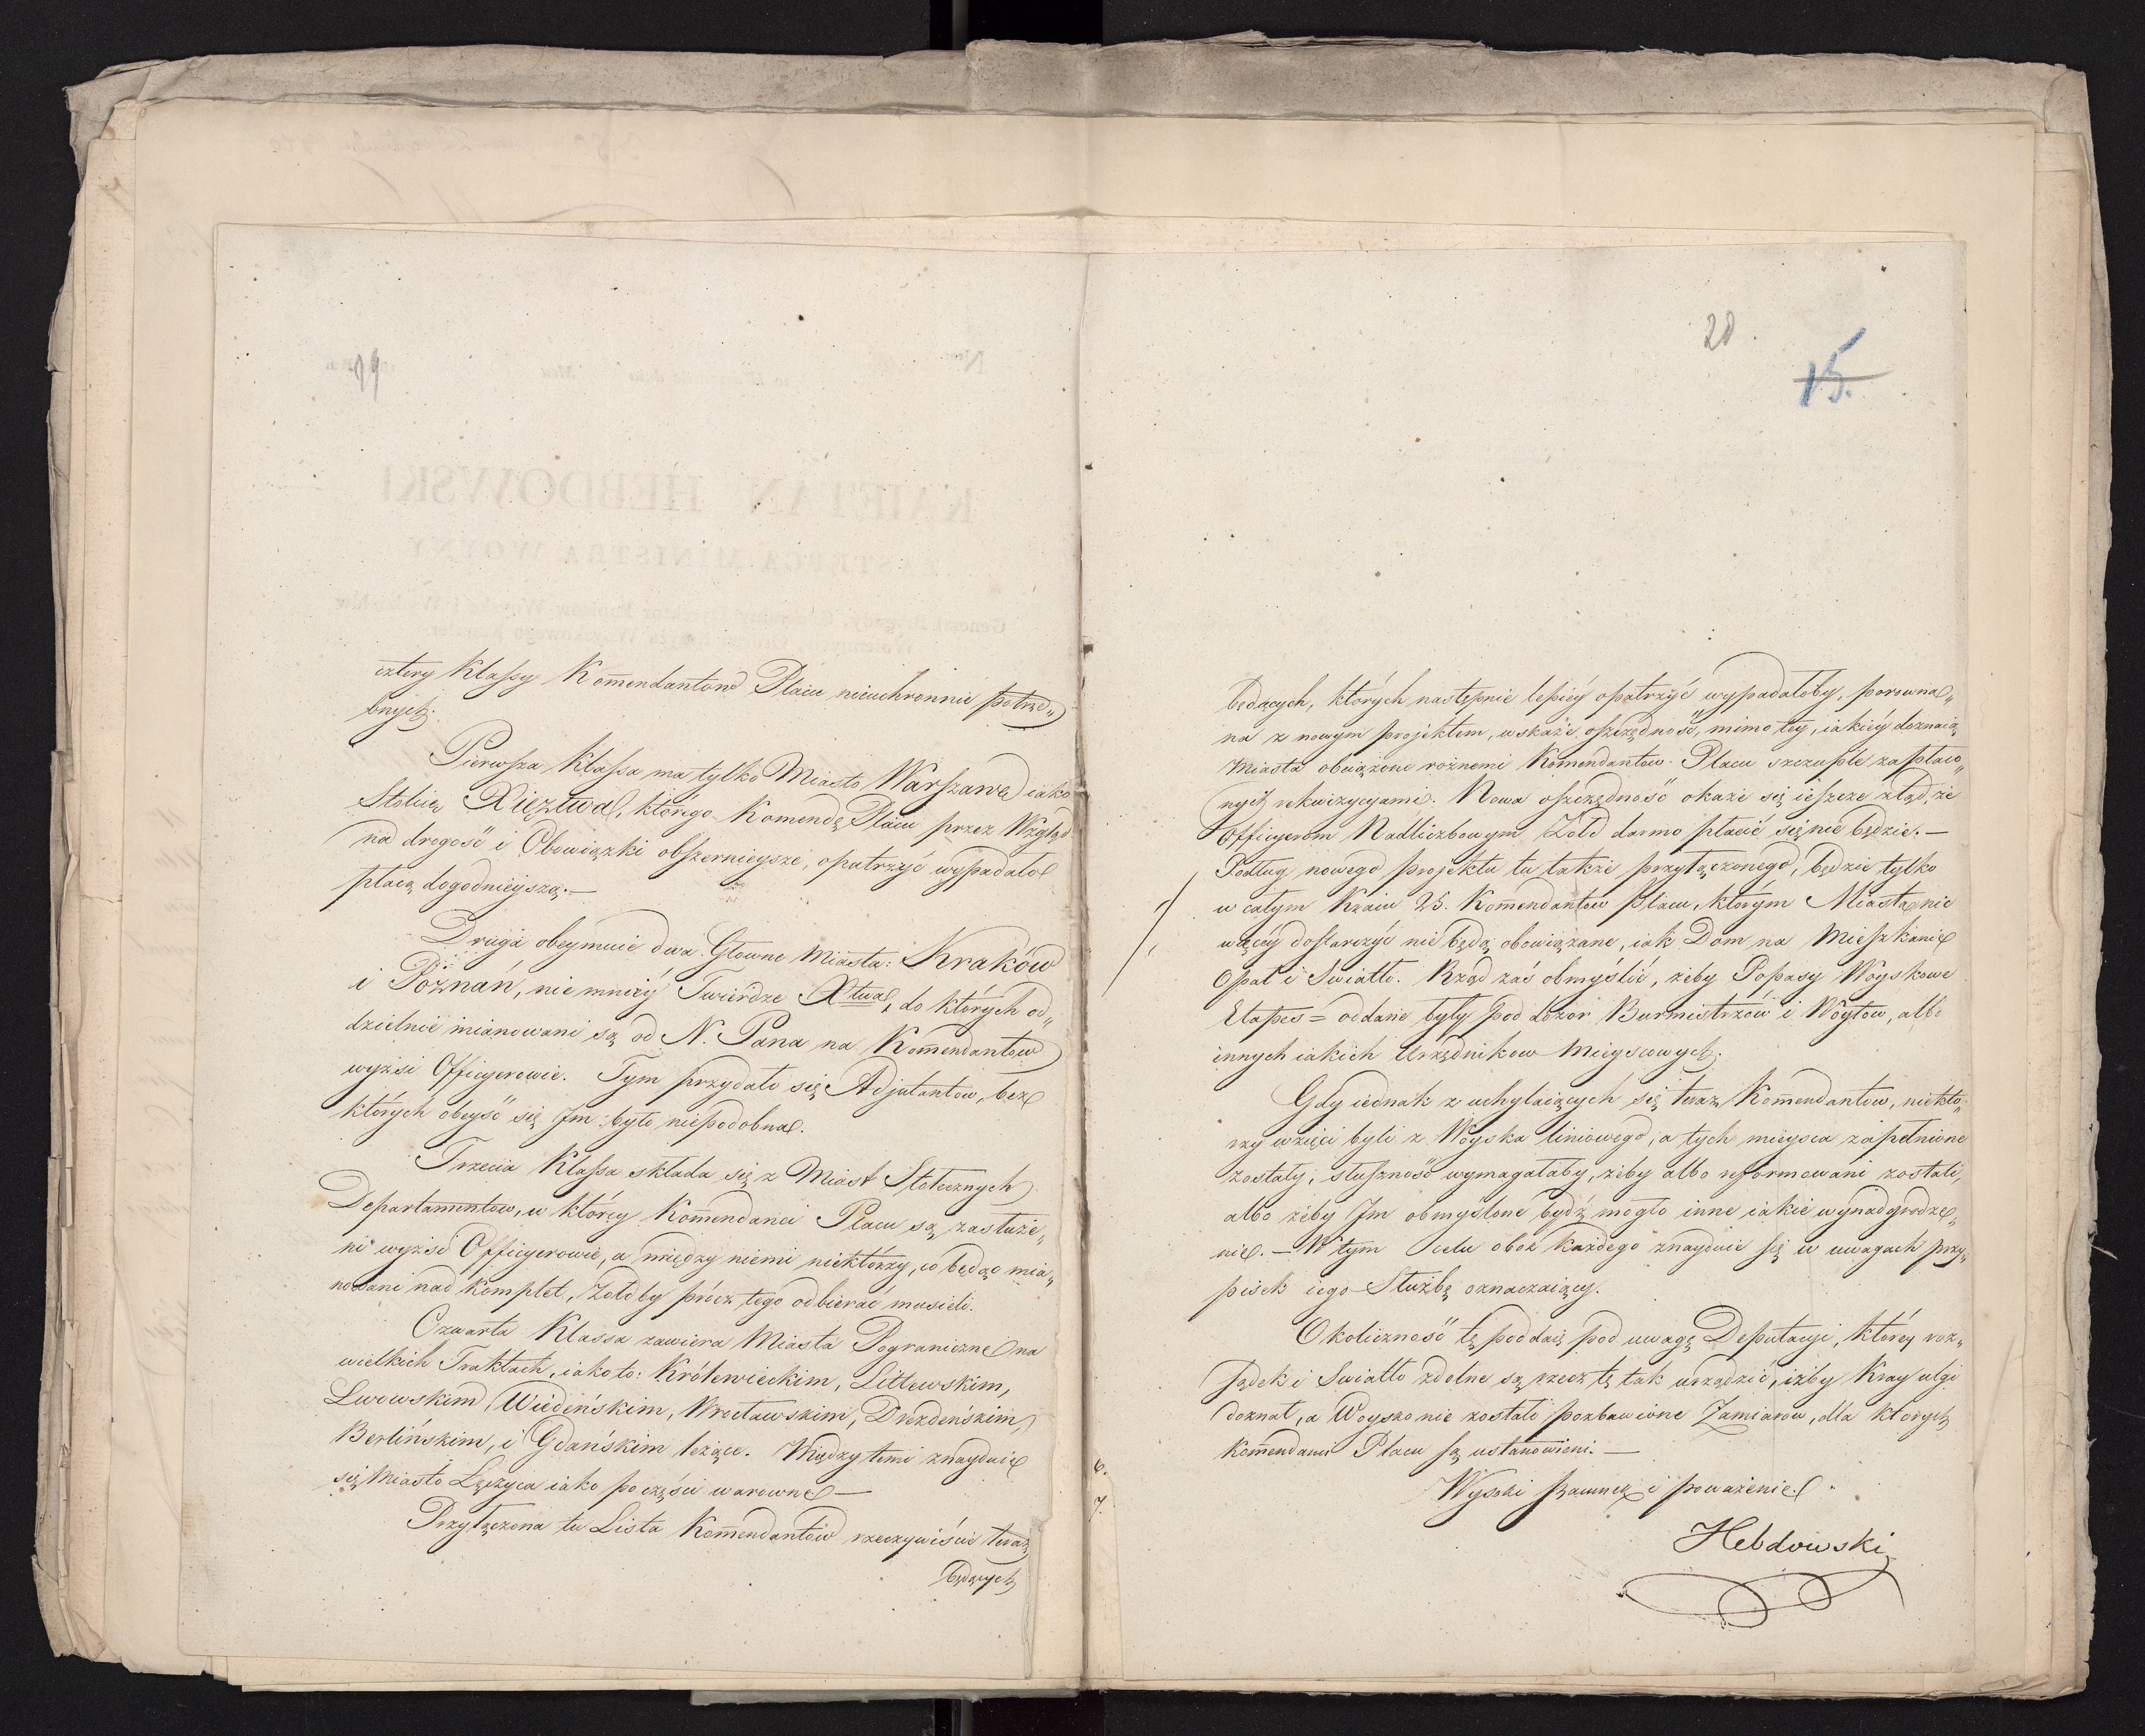 19
cztery Klassy Kom̄endantow Placu nieuchronnie potrze„
bnych.
Pierwsza Klassa ma tylko Miasto Warszawę iako
Stolicę Xięztwa, którego Komendę Placu przez Wzgląd
na drogość i Obowiązki obszernieysze, opatrzyć wypadało
płacą dogodnieyszą.—
Druga obeymuie dwa Głowne Miasta: Kraków
i Poznań, niemniéy Twierdze Xtwa, do których od„
dzielnie mianowani są od N. Pana na Kom̄endantow
wyżsi Officyerowie. Tym przydało się Adjutantow, bez
których obeyść się Im było niepodobna.
Trzecia Klassa składa się z Miast Stołecznych
Departamentow, w któréy Kom̄endanci Placu są zasłuże„
ni wyżsi Officyerowie, a między niemi niektórzy, co będąc mia„
nowani nad komplet, Żołd by prócz tego odbierać musieli.
Czwarta Klassa zawiera Miasta Pograniczne na
wielkich Traktach, iako to: Królewieckim, Littewskim,
Lwowskim, Wiedeńskim, Wrocławskim, Drezdeńskim,
Berlińskim, i Gdańskim leżące. Między temi znayduie
się Miasto Łęczyca iako po części warowne—
Przyłączona tu Lista Kom̄endantów rzeczywiście teraz
będących
20.
15.
będących, których następnie lepiéy opatrzyć wypadałoby, porowna„
na z nowym projektem, wskaże oszczędność, mimo téy, iakiéy doznaią
Miasta obciążone rożnemi Komendantow Placu szczuple zapłaco„
nych rekwizycyami. Nowa oszczędność okaże się ieszcze ztąd, że
Officyerom Nadliczbowym Żołd darmo płacić się nie będzie.—
Podług nowego projektu tu także przyłączonego, będzie tylko
w całym Kraiu 25. Kom̄endantow Placu, ktorym Miasta nic
więcéy dostarczyć nie będą obowiązane, iak Dom na Mieszkanie
Opał i Swiatło. Rząd zaś obmyślić, żeby Popasy Woyskowe
Etapes = oddane były pod dozor Burmistrzów i Wóytow, albo
innych iakich Urzędnikow Mieyscowych.
Gdy iednak z uchylaiących się teraz Kom̄endantow, niektó„
rzy wzięci byli z Woyska liniowego, a tych mieysca zapełnione
zostały; słuszność wymagałaby, żeby albo reformowani zostali,
albo żeby Im obmyślone bydź mogło inne iakie wynadgrodze„
nie.— W tym celu oboz każdego znayduie się w uwagach przy„
pisek iego Służbę oznaczaiący.
Okoliczność tę poddaię pod uwagę Deputacyi, któréy roz„
sądek i Swiatło zdolne są rzecz tę tak urządzić, iżby Kray ulgi
doznał, a Woysko nie zostało pozbawione Zamiarow, dla których
Kom̄endanci Placu są ustanowieni.—
Wysoki szacunek i poważenie.
Hebdowski
6.
7.
KAIETAN HEBDOWSKI
ZASTĘPCA MINISTRA WOYNY